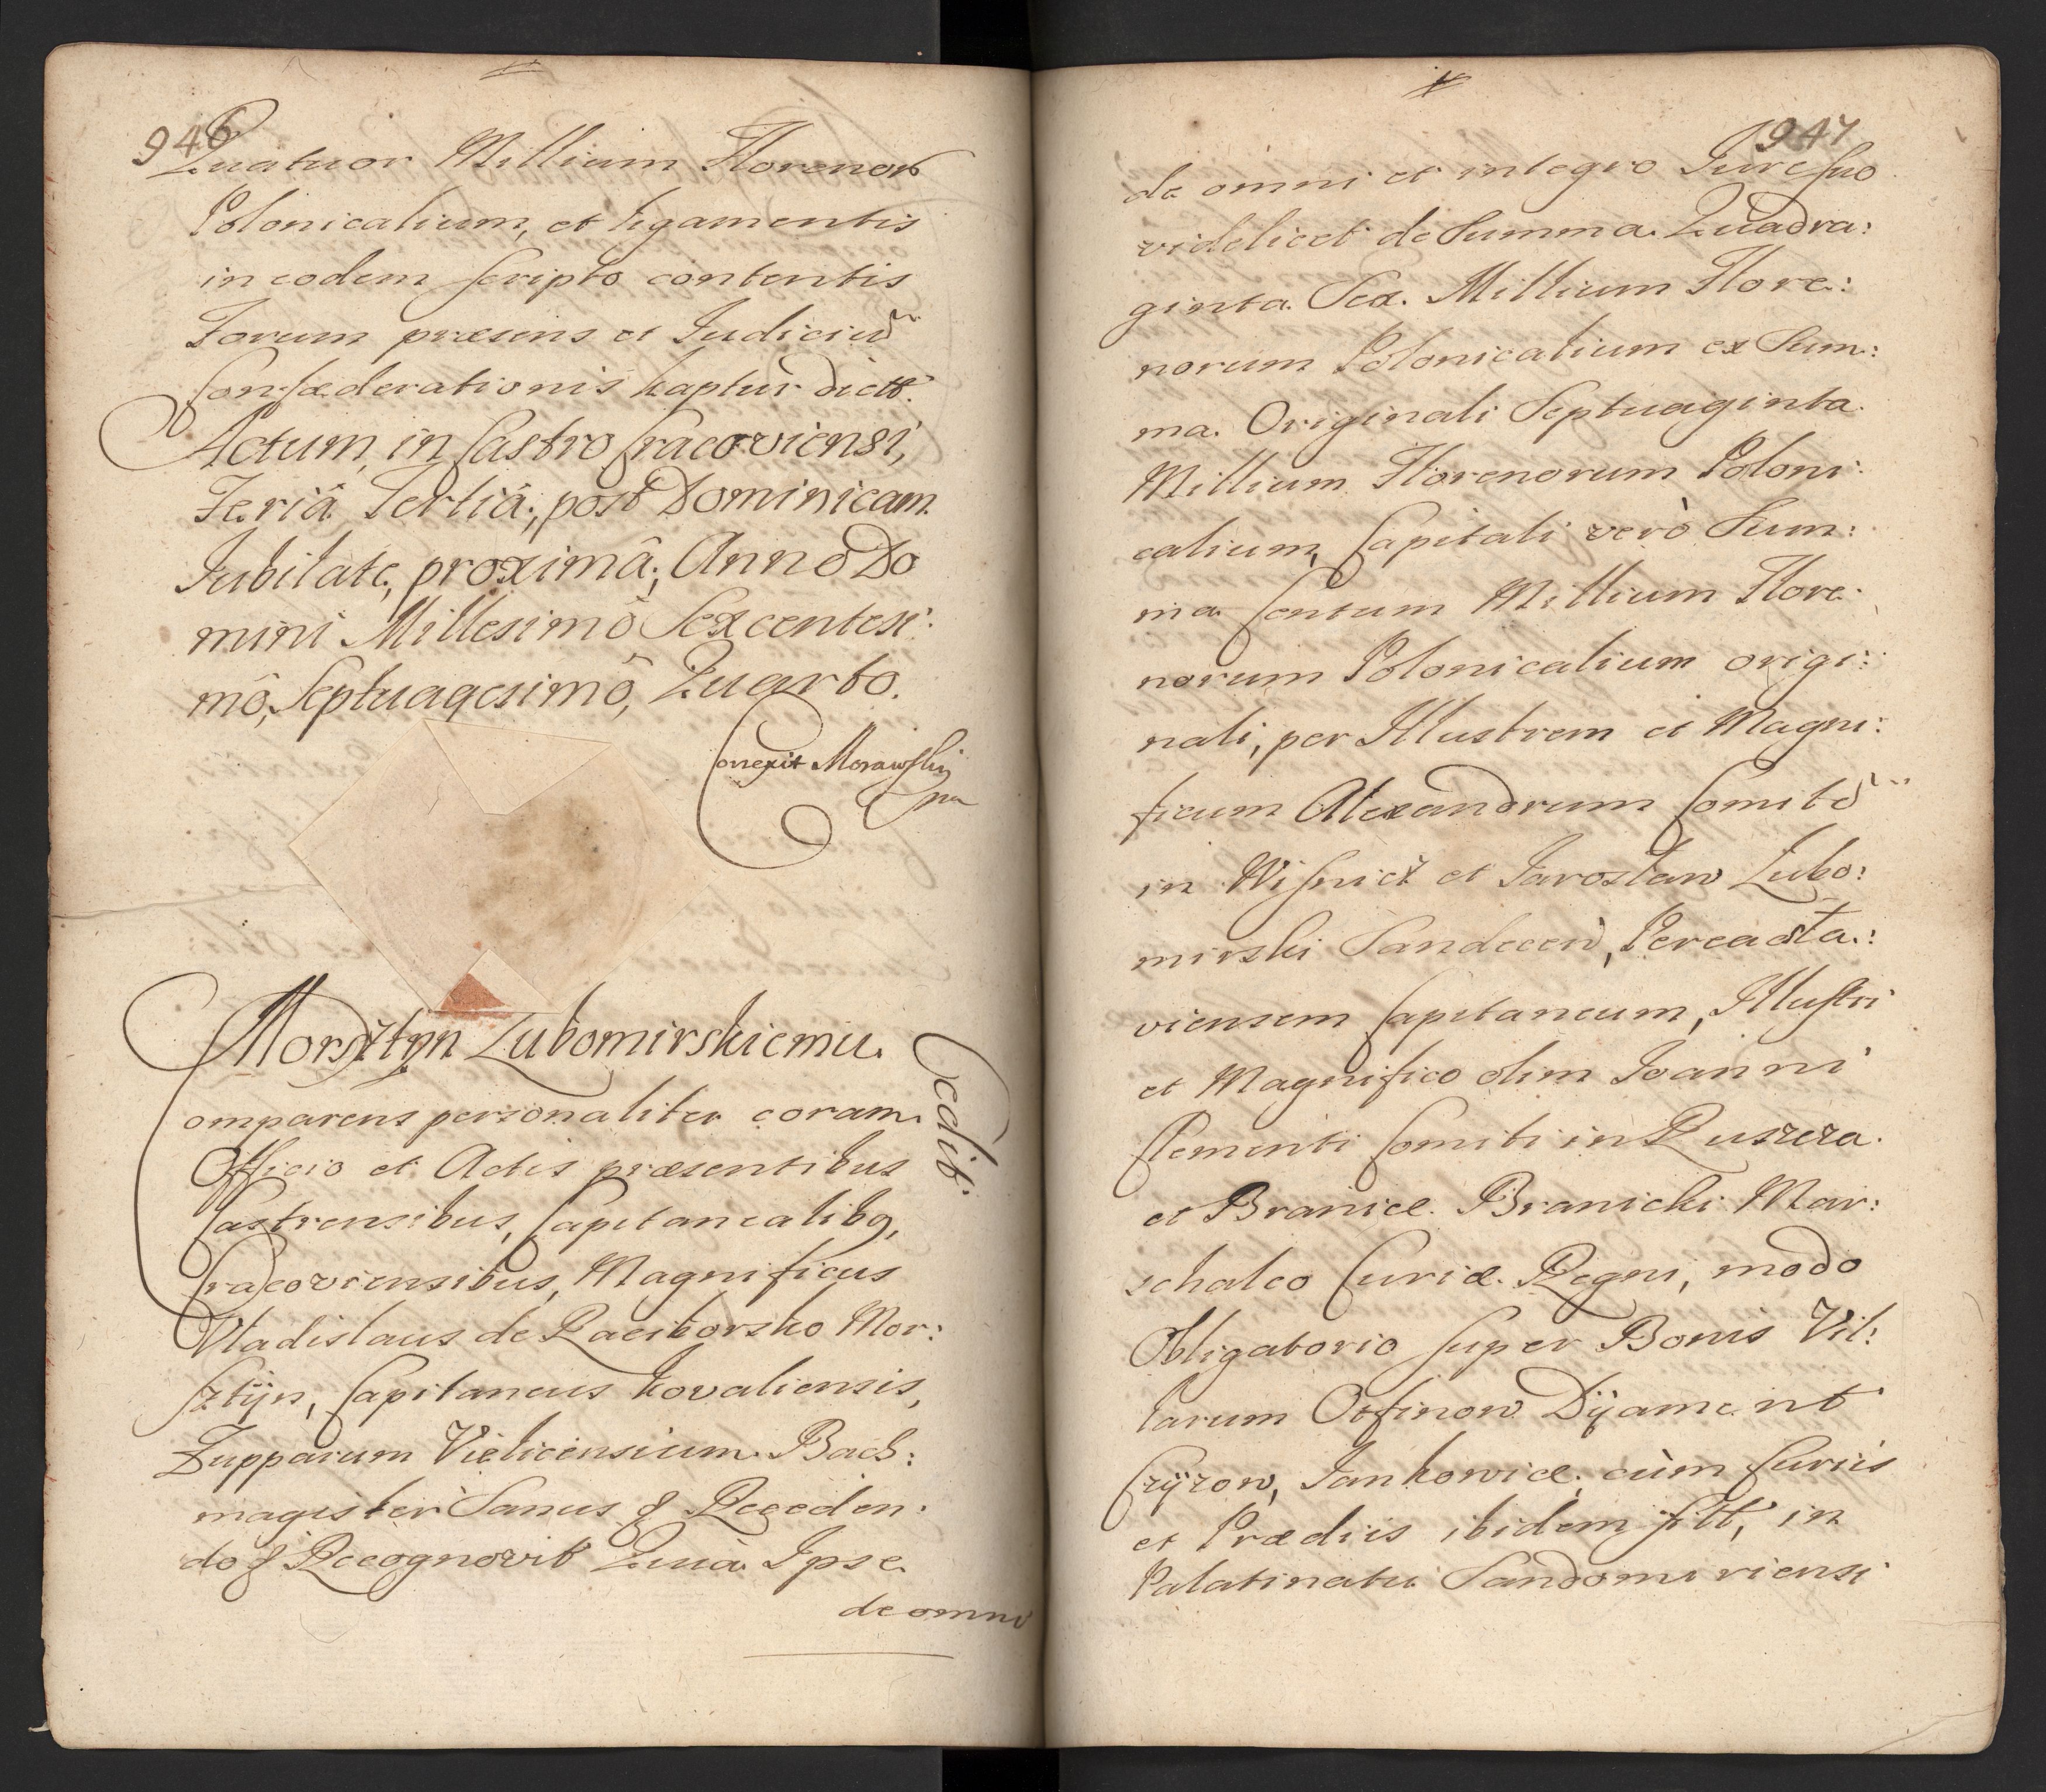 946
Quatuor Millium Florenor
Polonicalium, et ligamentis
in eodem scripto contentis
Forum præsens et Judiciū
Confæderationis kaptur dictt:
Actum in Castro Cracoviensi,
Feriâ Tertiâ, post Dominicam
Jubilate, proximâ, Anno Do
mini Millesimô Sexcentesi:
mô, Septuagesimô, Quarto.
Correxit Morawski
mp
Morsztyn Lubomirskiemu.
Cedit.
Comparens personaliter coram
Officio et Actis præsentibus
Castrensibus, Capitanealibq,
Cracoviensibus, Magnificus
Vladislaus de Raciborsko Mor:
sztijn, Capitaneus kovaliensis,
Zupparum Vielicensium Bach:
magister Sanus & Receden:
do & Recognovit Quià Ipse
de omni
947
de omni et integro Jure suo
videlicet de Summa Quadra:
ginta Sex Millium Flore:
norum Polonicalium ex Sum:
ma Originali Septuaginta
Millium Florenorum Poloni:
calium, Capitali verò Sum:
ma Centum Millium Flore:
norum Polonicalium origi:
nali, per Illustrem et Magni:
ficum Alexandrum Comitē
in Wisnicz et Jaroslaw Lubo:
mirski Sandecen̄, Pereasta:
viensem Capitaneum, Illustri
et Magnifico olim Joanni
Clementi Comiti in Ruszcza
et Branice Branicki Mar:
schalco Curiæ Regni, modo
Obligatorio super Bonis Vil:
larum Otfinow Dijament
Czyzow, Jankowice, cùm Curiis
et Prædiis ibidem sitt, in
Palatinatu Sandomiriensi